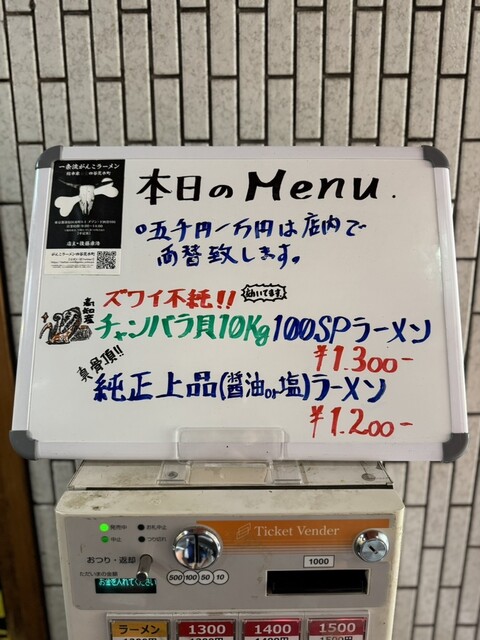 一条流がんこラーメン
四谷荒木町
店主・後藤
がんこラーメン四谷荒木町
本日のMenu.
○五千円一万円は店内で
両替致します。
ズワイ不純!!
効いてます
高知産
チャンバラ貝10Kg100SPラーメン
¥1.300-
真骨頂!!
純正上品(醤油or塩)ラーメン
¥1.200-
発売中
お札中止
中止
つり切れ
Ticket Vender
おつり・返却
ただいまの金額
お金を入れてください
500 100 50 10
1000
ラーメン
1300
1400
1500